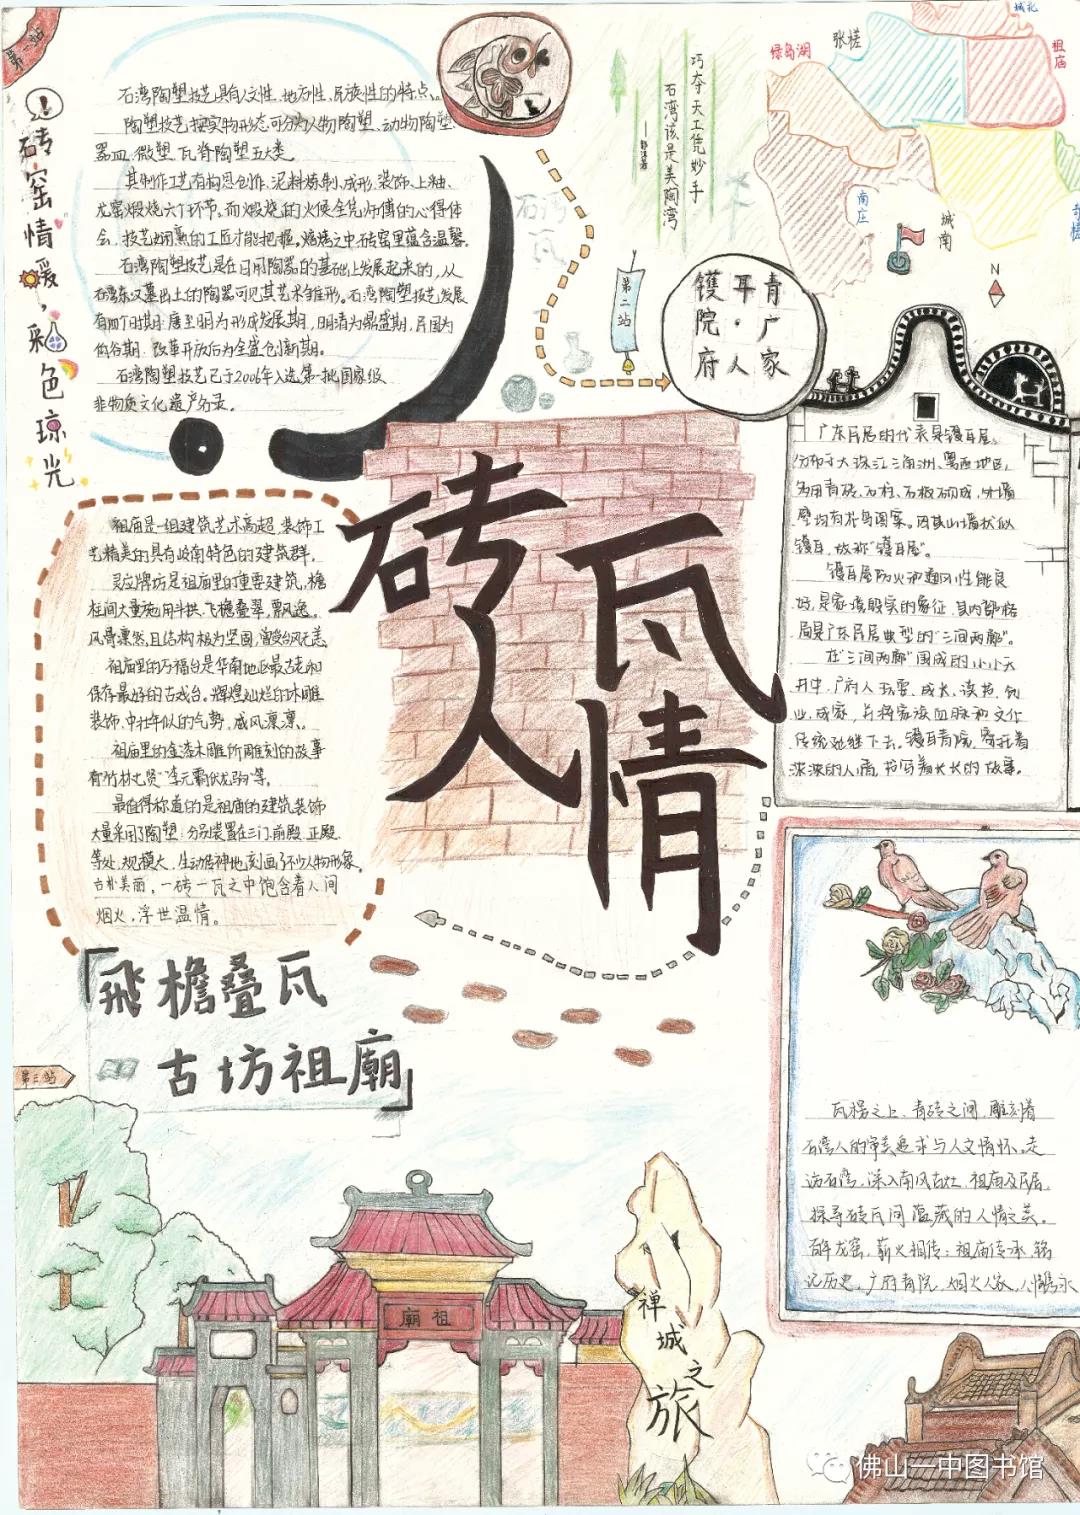 第一站
砖窑情暖，彩色琼光
石湾陶塑技艺具有人文性、地方性、民族性的特点。
陶塑技艺按实物形态可分为人物陶塑、动物陶塑、
器皿、微塑、瓦脊陶塑五大类
其制作工艺有构思创作、泥料炼制、成形、装饰、上釉、
龙窑煅烧六个环节。而煅烧的火候全凭师傅的心得体
会，技艺娴熟的工匠才能把握。烧烤之中砖窑里蕴含温馨。
石湾陶塑技艺是在日用陶器的基础上发展起来的，从
石湾东汉墓出土的陶器可见其艺术雏形。石湾陶塑技艺发展
有四个时期：唐至明为形成发展期，明清为鼎盛期，民国为
低谷期，改革开放后为全盛创新期。
石湾陶塑技艺已于2006年入选第一批国家级
非物质文化遗产名录。
巧夺天工凭妙手
石湾该是美陶湾
石湾
瓦
绿岛湖
张槎
城北
祖庙
南庄
城南
奇槎
N
第二站
青广家
耳·人
镬院府
广东民居的代表是镬耳屋。
分布于大珠江三角洲、粤西地区，
多用青砖、石柱、石板砌成，外墙
壁均有花鸟图案。因其山墙状似
镬耳，故称“镬耳屋”。
镬耳屋防火和通风性能良
好，是家境殷实的象征，其内部格
局是广东民居典型的“三间两廊”。
在“三间两廊”围成的小小天
井中，广府人玩耍、成长、读书、创
业、成家，并将家族血脉和文化
传统延继下去。镬耳青院，寄托着
深深的人情，书写着长长的故事。
砖瓦
人情
祖庙是一组建筑艺术高超、装饰工
艺精美的具有岭南特色的建筑群，
灵应牌坊是祖庙里的重要建筑，檐
柱间大量施用斗拱，飞檐叠翠，飘逸。
风骨凛然，且结构极为坚固，曾受台风无恙。
祖庙里的万福台是华南地区最古老和
保存最好的古戏台。辉煌灿烂的木雕
装饰，中壮年似的气势，威风凛凛。
祖庙里的金漆木雕所雕刻的故事
有“竹林七贤”“李元霸伏龙驹”等。
最值得称道的是祖庙的建筑装饰
大量采用了陶塑，分别装置在三门、前殿、正殿
等处，规模大，生动传神地刻画了不少人物形象。
古朴美丽，一砖一瓦之中饱含着人间
烟火，浮世温情。
「飛檐叠瓦
古坊祖廟」
第三站
瓦楞之上，青砖之间，雕刻着
石湾人的审美追求与人文情怀。走
访石湾，深入南风古灶、祖庙及民居，
探寻砖瓦间蕴藏的人情之美。
百年龙窑，薪火相传；祖庙传承，铭
记历史，广府青院，烟火人家，人情永
廟祖
禅城之旅
佛山一中图书馆